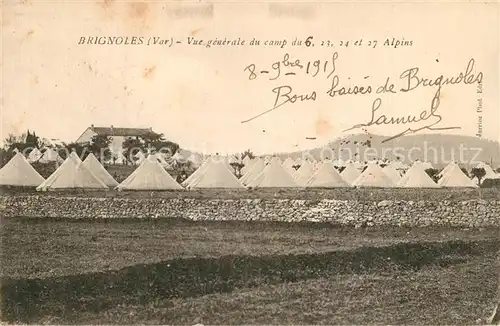 BRIGNOLES (Var) - Vue générale du camp du 6, 23, 24 et 27 Alpins
8-9bre 1915
Bons baisers de Brignoles
Samuel